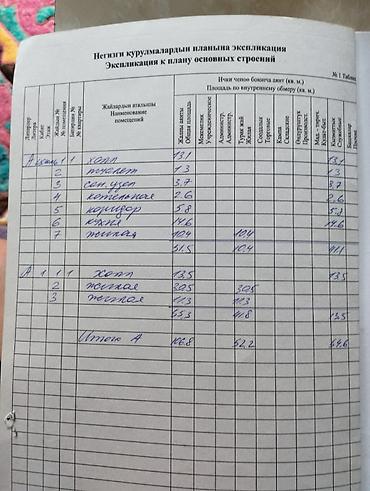 Негизги курулмалардын планына экспликация
Экспликация к плану основных строений
№ 1 Таблица
Ички ченөө боюнча аянт (кв. м.)
Площадь по внутреннему обмеру (кв. м.)
Литерлер Литера
Кабат Этаж
Жайдын № № помещения
Батирдин № № квартиры
Жайлардын аталышы Наименование помещений
Жалпы аянты Общая площадь
Мектептик Учрежденческое
Администр. Администр.
Турак жай Жилая
Соодалык Торговые
Кампа Складские
Өндүрүштүк Производст.
Көмөкчү Служебные
Башкалар Прочие
1 1 холл 13,1 13,1
2 туалет 1,3 1,3
3 сан.узел 3,7 3,7
4 котельная 2,6 2,6
5 коридор 5,8 5,8
6 кухня 14,6 14,6
7 жилая 10,4 10,4
51,5 10,4 41,1
А 1 1 1 холл 13,5 13,5
2 жилая 30,5 30,5
3 жилая 11,3 11,3
55,3 41,8 13,5
Итого А 106,8 52,2 54,6